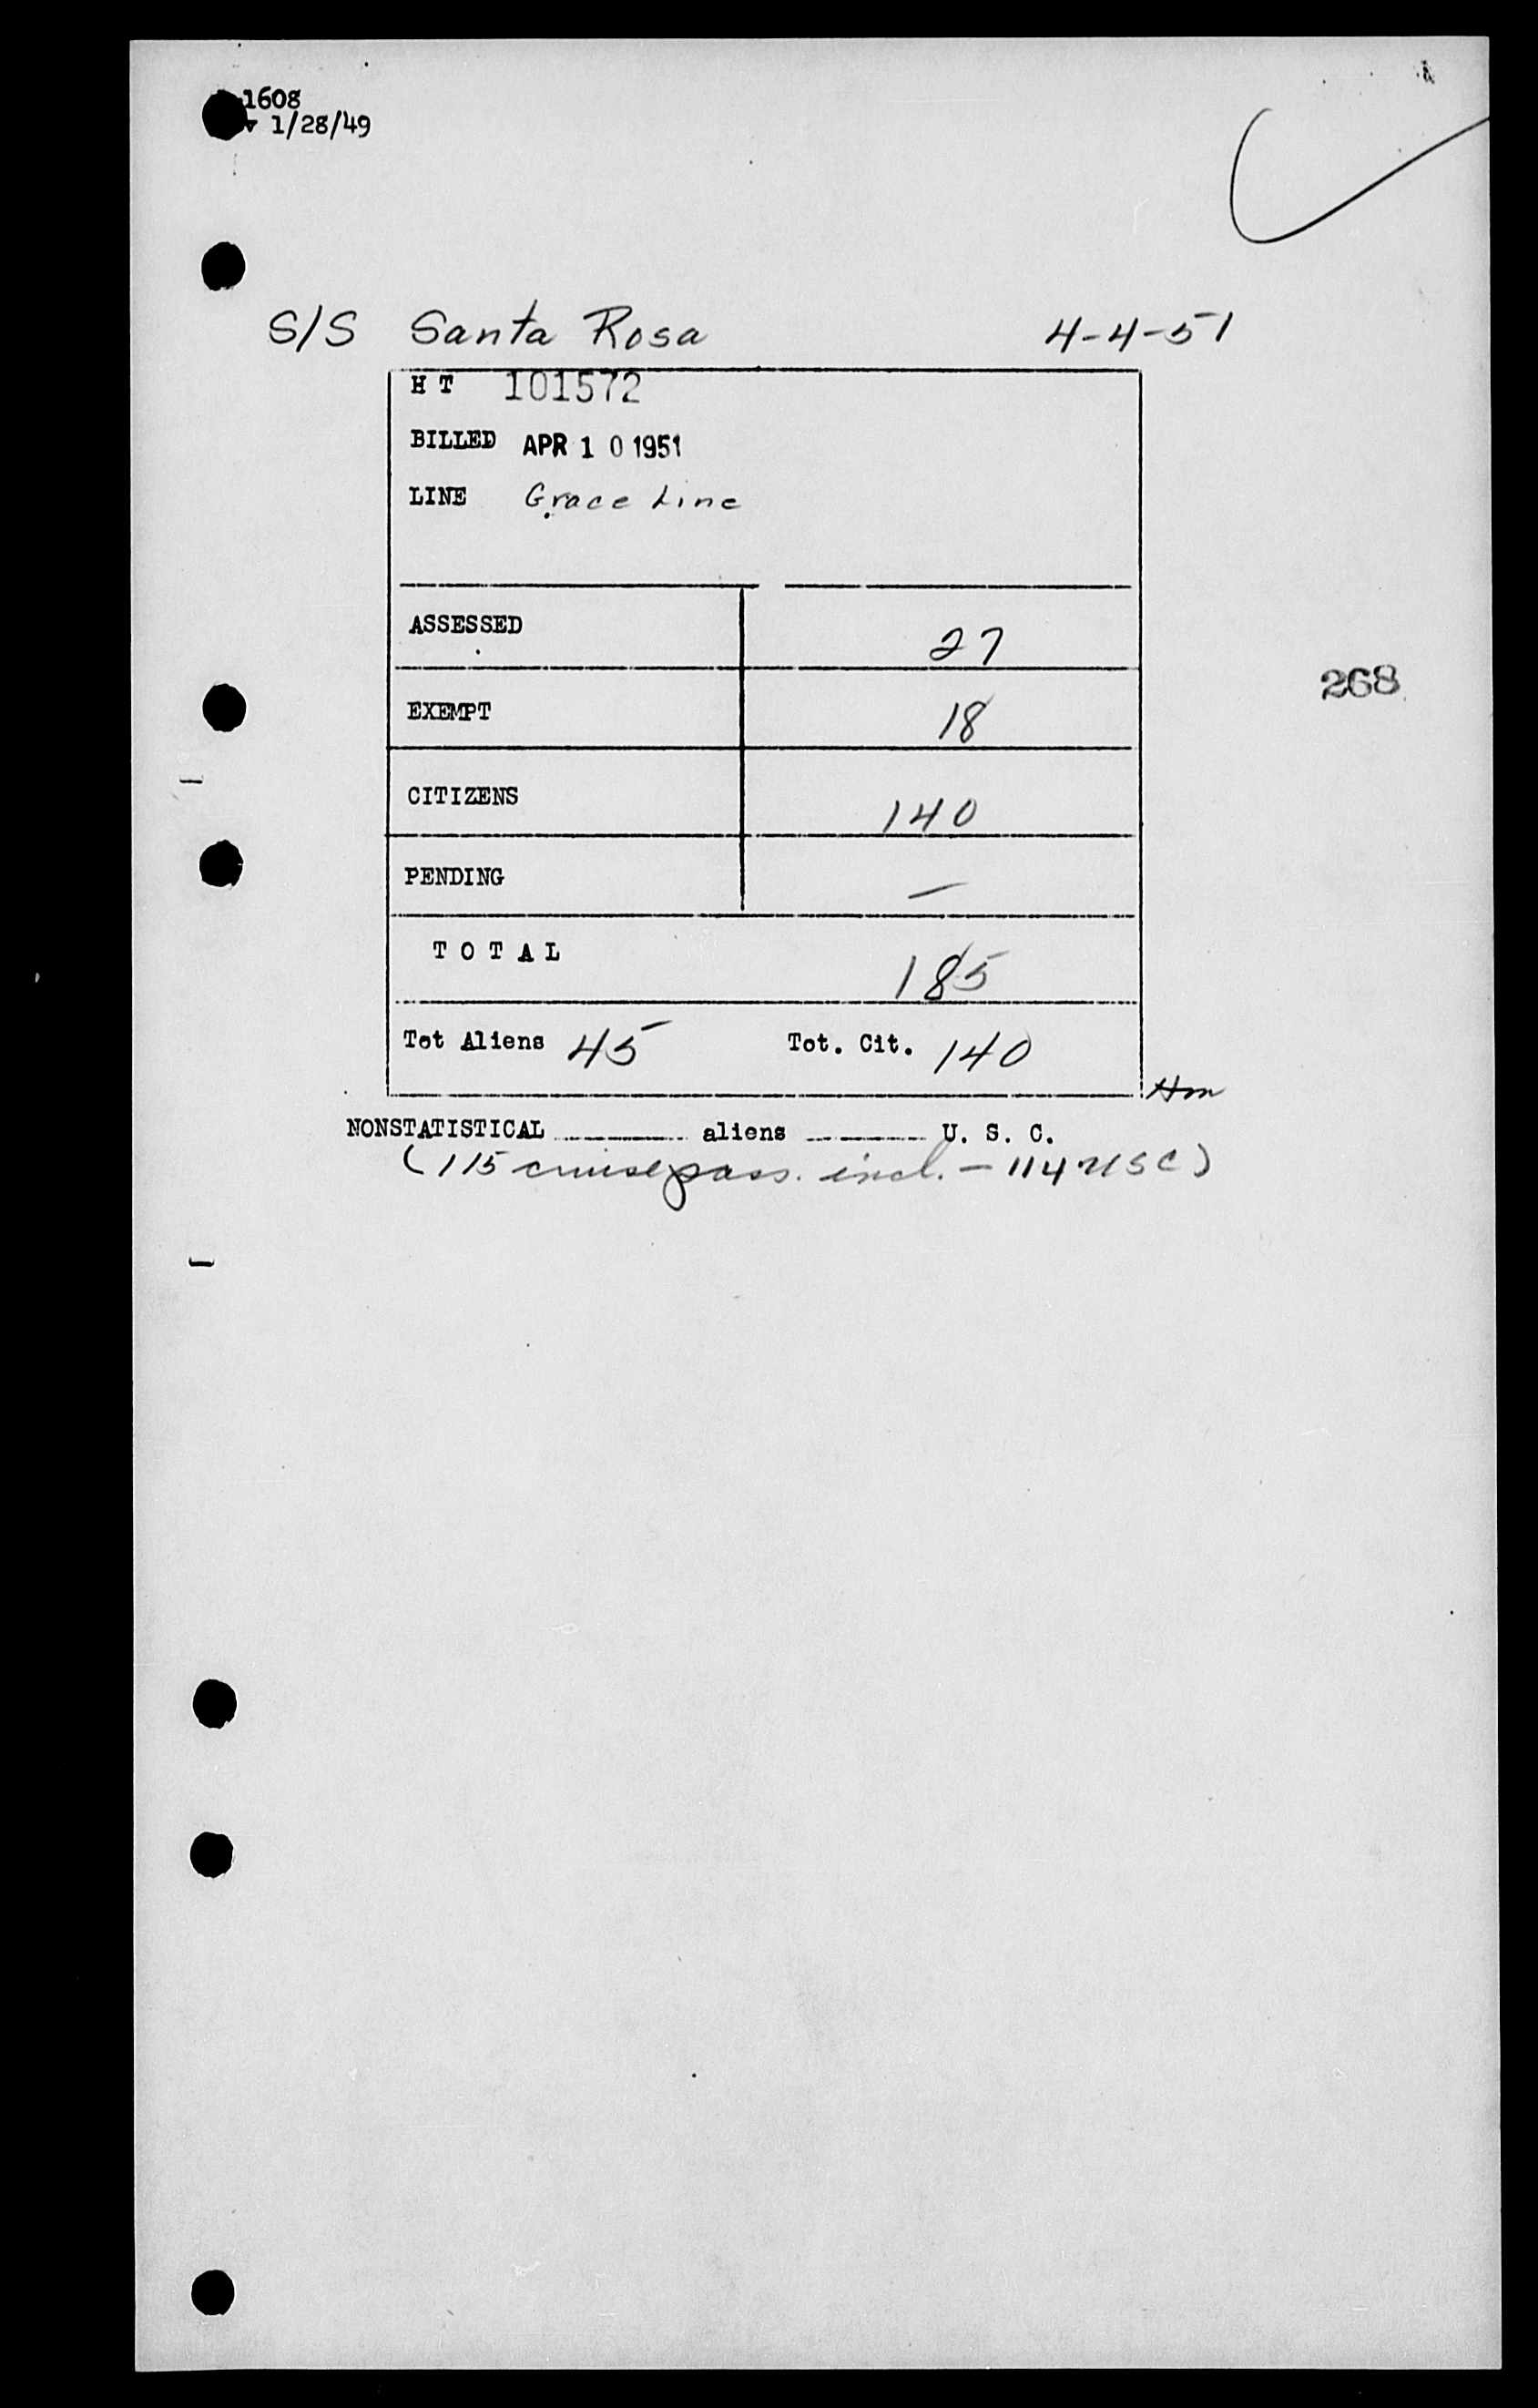 1608
1/28/49
S/S Santa Rosa 4-4-51
H T 101572
BILLED APR 10 1951
LINE Grace Line
ASSESSED 27
268
EXEMPT 18
CITIZENS 140
PENDING —
T O T A L 185
Tot Aliens 45 Tot. Cit. 140
NONSTATISTICAL ________ aliens ________ U. S. C.
(115 cruise pass. incl. - 114 USC)